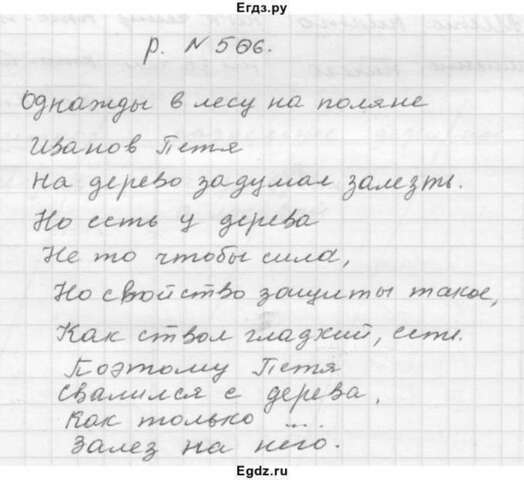 Егдз.ру
р. №506.
Однажды в лесу на поляне
Иванов Петя
На дерево задумал залезть.
Но есть у дерева
Не то чтобы сила,
Но свойство защиты такое,
Как ствол гладкий, есть.
Поэтому Петя
Свалился с дерева,
Как только ...
Залез на него.
Egdz.ru